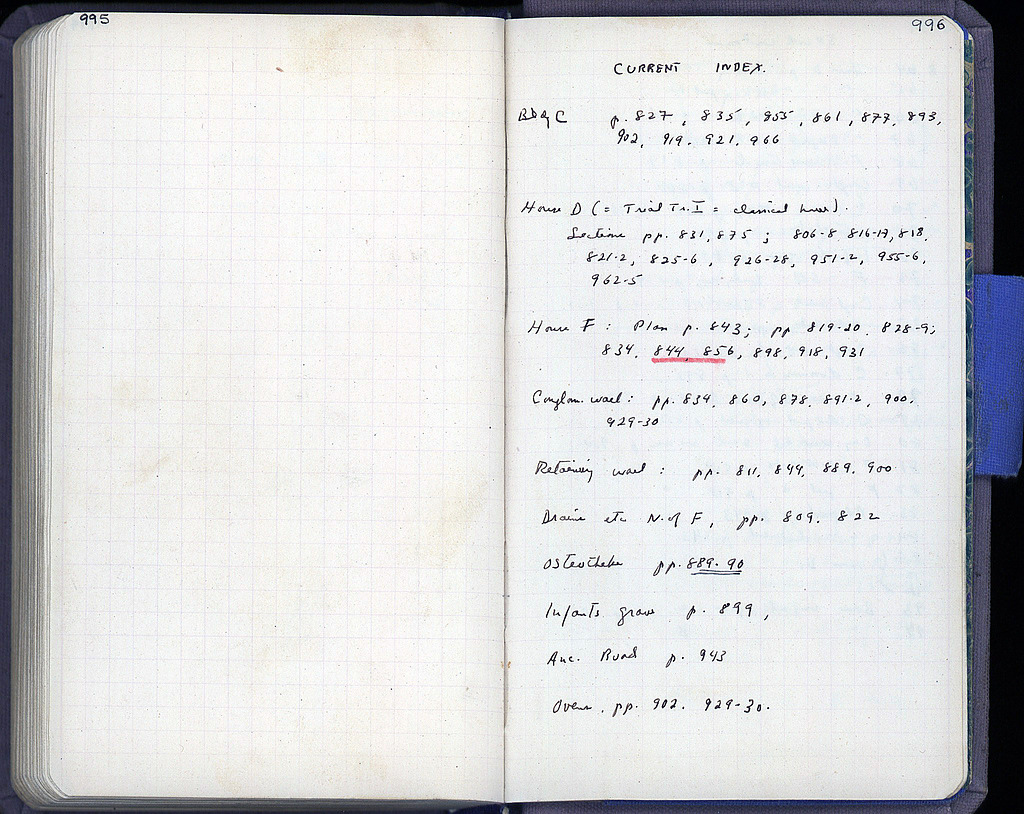 995
996
CURRENT INDEX.
Bldg C p. 827, 835, 855, 861, 877, 893,
902, 919. 921. 966
House D (= Trial Tr. I = classical house).
Sections pp. 831, 875; 806-8 816-17, 818.
821-2, 825-6, 926-28, 951-2, 955-6,
962-5
House F: Plan p. 843; pp 819-20. 828-9;
834. 844 856, 898, 918, 931
Conglom. wall: pp. 834. 860, 878, 891-2, 900.
929-30
Retaining wall: pp. 811, 849, 889, 900
Drains etc N. of F, pp. 809. 822
Osteotheke pp. 889-90
Infants grave p. 899,
Anc. Road p. 943
Oven. pp. 902. 929-30.